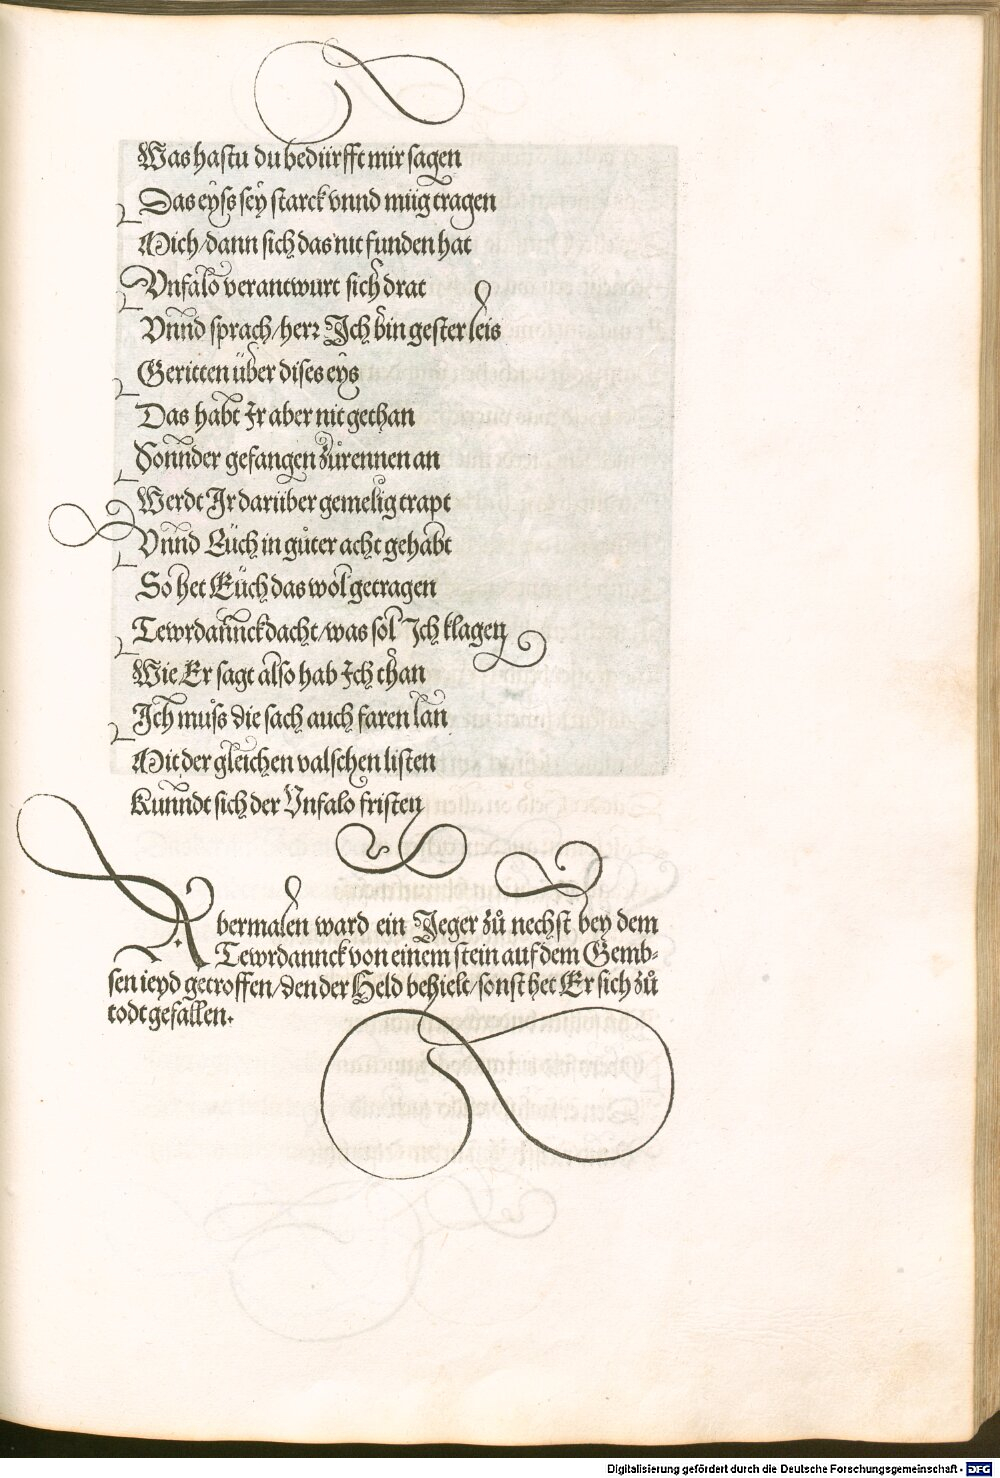 Was hastu du bedürfft mir sagen
Das eyss sey starck vnnd müg tragen
Mich/dann sich das nit funden hat
Vnfalo verantwurt sich drat
Vnnd sprach/herr Ich bin gester leis
Geritten über dises eys
Das habt Ir aber nit gethan
Sonnder gefangen zůrennen an
Werdt Ir darüber gemelig trapt
Vnnd Eüch in gůter acht gehabt
So het Eüch das wol getragen
Tewrdannck dacht/was sol Ich klagen
Wie Er sagt also hab Ich than
Ich můss die sach auch faren lan
Mit der gleichen valschen listen
Kunndt sich der Vnfalo fristen
Abermalen ward ein Jeger zů nechst bey dem
Tewrdannck von einem stein auf dem Gemb-
sen ieyd getroffen/den der Held behielt/sonst het Er sich zů
todt gefallen.
Digitalisierung gefördert durch die Deutsche Forschungsgemeinschaft - DFG